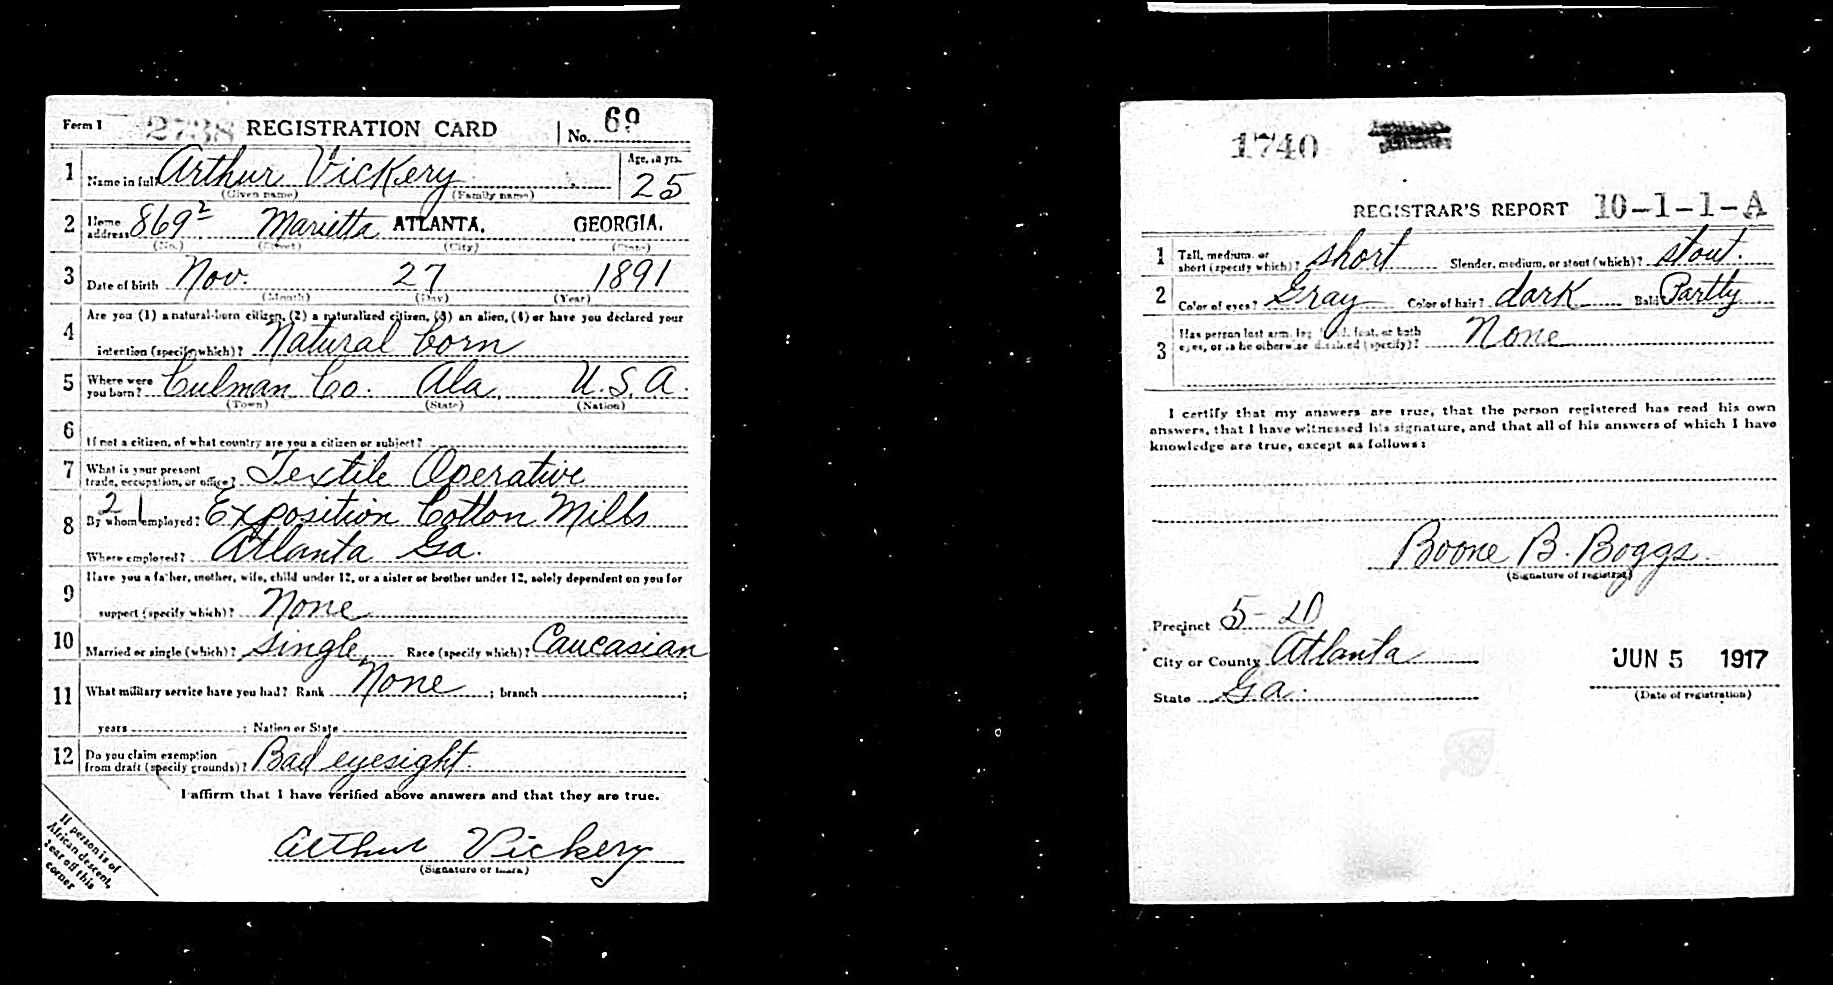 Form 1 2738 REGISTRATION CARD No. 69
1 Name in full Arthur Vickery Age, in yrs. 25
(Given name) (Family name)
2 Home address 869² Marietta ATLANTA. GEORGIA.
(No.) (Street) (City) (State)
3 Date of birth Nov. 27 1891
(Month) (Day) (Year)
4 Are you (1) a natural-born citizen, (2) a naturalized citizen, (3) an alien, (4) or have you declared your
intention (specify which)? Natural born
5 Where were you born? Culman Co. Ala. U.S.A.
(Town) (State) (Nation)
6 If not a citizen, of what country are you a citizen or subject?
7 What is your present trade, occupation, or office? Textile Operative
21
8 By whom employed? Exposition Cotton Mills
Where employed? Atlanta Ga.
9 Have you a father, mother, wife, child under 12, or a sister or brother under 12, solely dependent on you for
support (specify which)? None
10 Married or single (which)? Single Race (specify which)? Caucasian
11 What military service have you had? Rank None ; branch ;
years ; Nation or State
12 Do you claim exemption from draft (specify grounds)? Bad eyesight.
I affirm that I have verified above answers and that they are true.
Arthur Vickery
(Signature or mark)
If person is of
African descent,
tear off this
corner
1740
REGISTRAR'S REPORT 10-1-1-A
1 Tall, medium, or short (specify which)? Short Slender, medium, or stout (which)? Stout.
2 Color of eyes? Gray Color of hair? dark Bald? Partly
3 Has person lost arm, leg, hand, foot, or both eyes, or is he otherwise disabled (specify)? None
I certify that my answers are true, that the person registered has read his own
answers, that I have witnessed his signature, and that all of his answers of which I have
knowledge are true, except as follows:
Boone B. Boggs
(Signature of registrar)
Precinct 5-
City or County Atlanta
State Ga.
JUN 5 1917
(Date of registration)